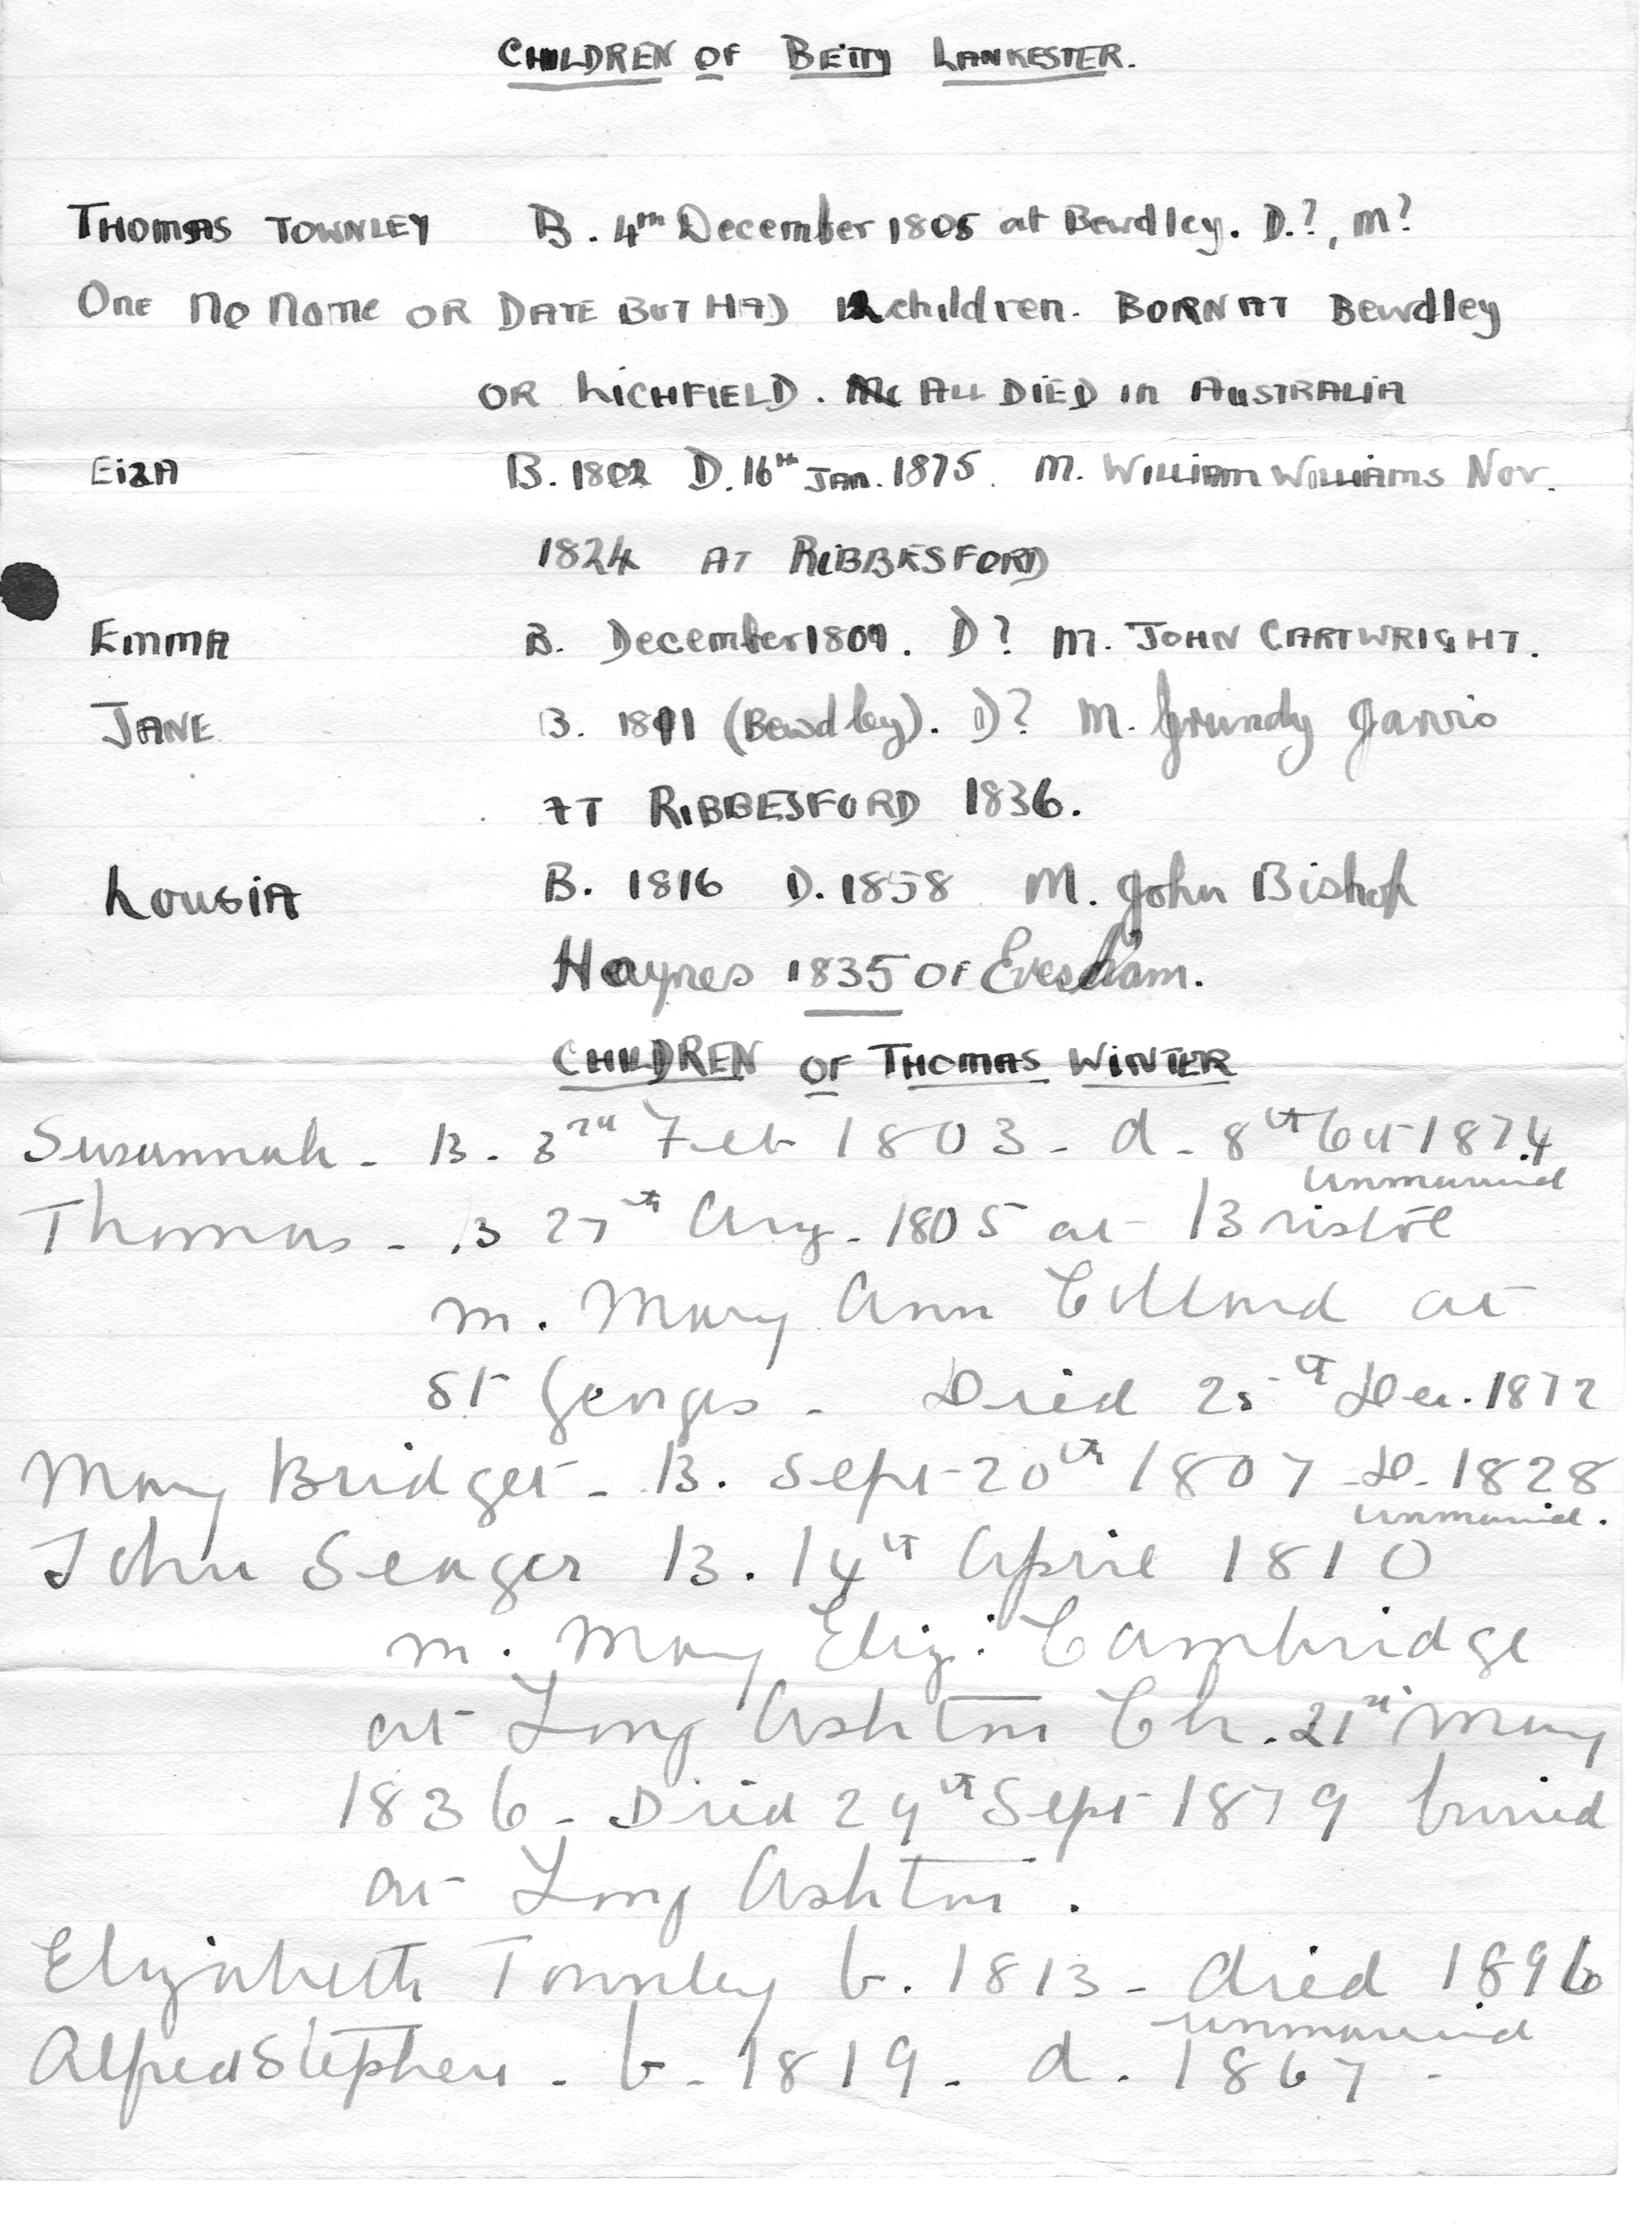 CHILDREN OF BETTY LANKESTER.
THOMAS TOWNLEY B. 4th December 1805 at Bewdley. D.?, M?
ONE NO NAME OR DATE BUT HAD 12 children. BORN AT Bewdley
OR LICHFIELD. ALL DIED in AUSTRALIA
EIZA B. 1802 D. 16th JAN. 1875. M. WILLIAM WILLIAMS Nov.
1824 AT RIBBESFORD
EMMA B. December 1809. D? M. JOHN CARTWRIGHT.
JANE B. 1811 (Bewdley). D? M. Grundy Jarvis
AT RIBBESFORD 1836.
LOUSIA B. 1816 D. 1858 M. John Bishop
Haynes 1835 OF Evesham.
CHILDREN OF THOMAS WINTER
Susannah - B. 3rd Feb 1803 - d - 8th Oct 1874
unmarried
Thomas - B 27th Aug - 1805 at Bristol
m. Mary Ann at
St Georges - Died 25th Dec. 1872
Mary Bridget - B. Sept 20th 1807 - D. 1828
unmarried.
John Seager B. 14th April 1810
m. Mary Eliz: Cambridge
at Long Ashton Ch. 21st May
1836 - Died 29th Sept 1879 buried
at Long Ashton.
Elizabeth Townley b. 1813 - died 1896
unmarried
Alfred Stephen - b - 1819 - d. 1867 -